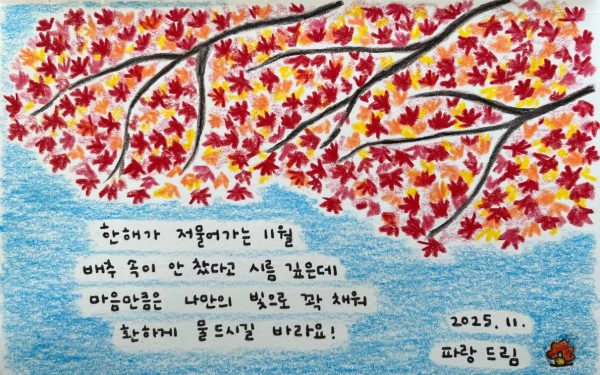 한해가 저물어가는 11월
배추 속이 안 찼다고 시름 깊은데
마음만큼은 나만의 빛으로 꽉 채워
환하게 물드시길 바라요!
2025. 11.
파랑 드림